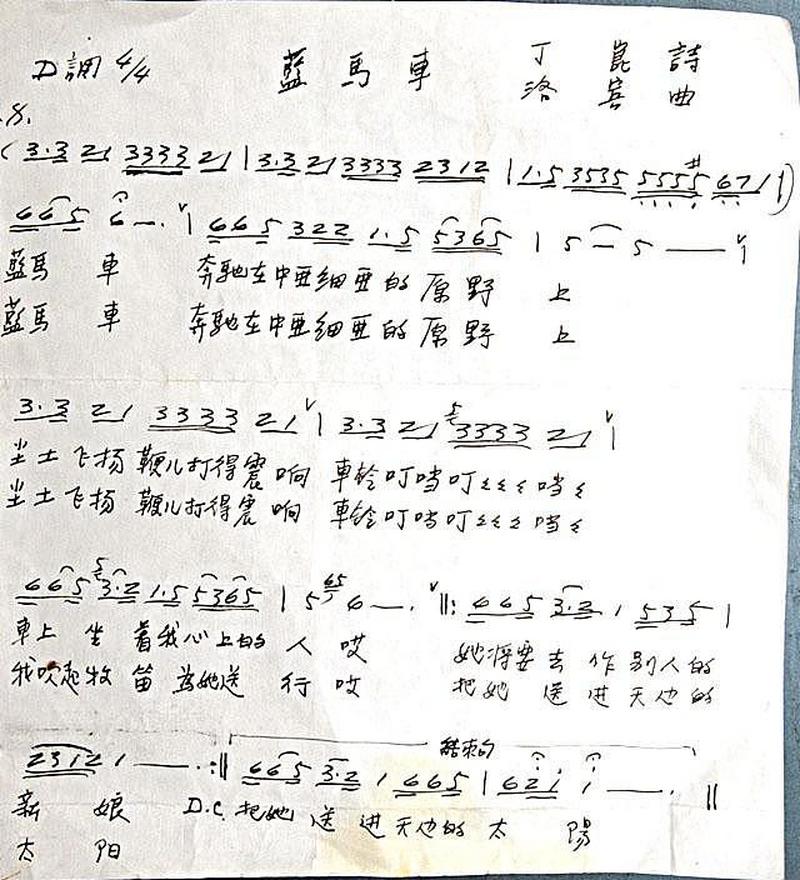 D調 4/4 藍馬車 丁崑詩
洛賓曲
.8.
(3·3 21 3333 21 | 3·3 21 3333 2312 | 1·5 3535 5555 671 |)
665 6 — · | 665 322 1·5 5365 | 5 — 5 — |
藍馬 車 奔馳在中亜細亜的原野 上
藍馬 車 奔馳在中亜細亜的原野 上
3·3 21 3333 21 | 3·3 21 3333 21 |
尘土飞扬 鞭儿打得震响 車鈴叮噹叮〻〻〻噹〻
尘土飞扬 鞭儿打得震响 車鈴叮噹叮〻〻〻噹〻
665 3·2 1·5 5365 | 5 6 — · ||: 665 3·2 1 535 |
車上 坐 着我心上的 人 哎 她将要去作别人的
我吹起牧 笛 為她送 行 哎 把她 送 进 天边的
2312 1 — · :|| 665 3·2 1 665 | 621 1 — · ||
結束句
新 娘 D.C. 把她 送 进天边的太 陽
太 阳